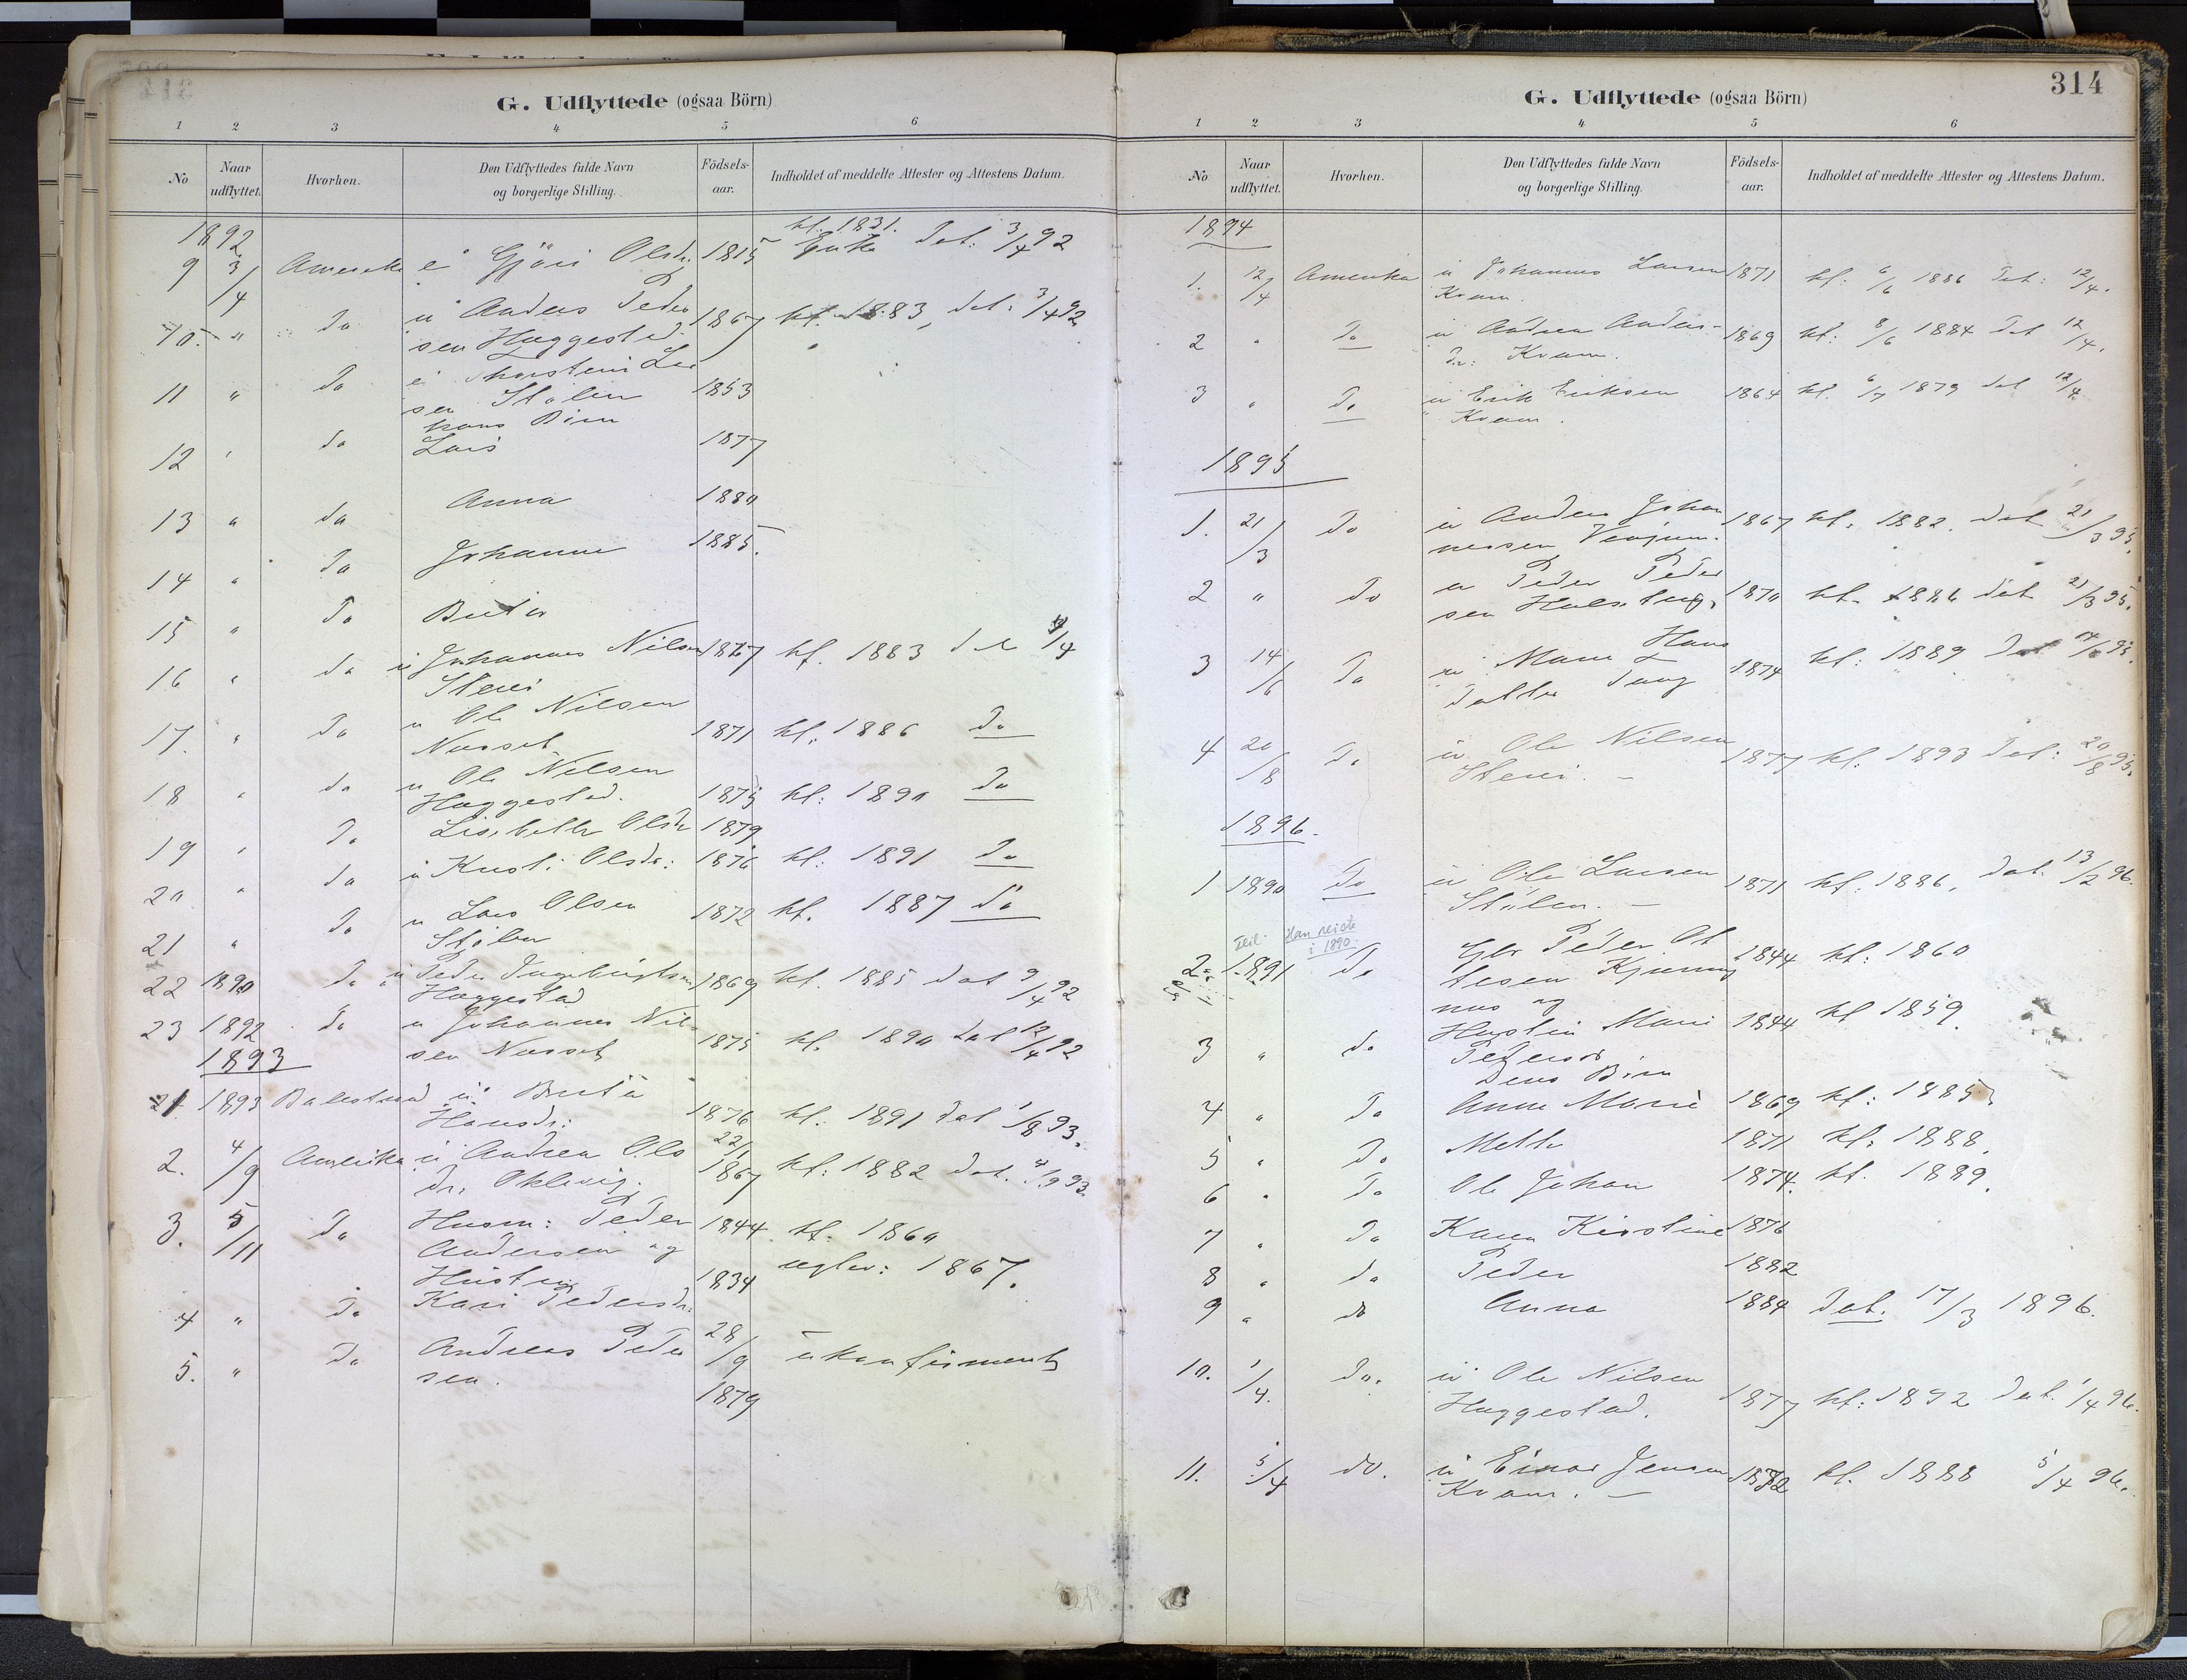 G. Udflyttede (ogsaa Börn)
1 2 3 4 5 6
No
Naar udflyttet.
Hvorhen.
Den Udflyttedes fulde Navn og borgerlige Stilling.
Födsels-aar.
Indholdet af meddelte Attester og Attestens Datum.
1892
kf. 1831.
9 3/4 Amerika e Gjöri Olsdr. 1815 Enke Dat: 3/4 92
10. " Do u Anders Peder
sen Haggestad 1867 kf. 1883, dat: 3/4 92
11 " Do e Thorstein Lar
sen Stölen 1853
hans Börn
12 " do Lars 1877
13 " do Anna 1880
14 " Do Johanne 1885.
15 " Do Brita
16 " do u Johannes Nilsen 1867 kf. 1883 /4
17. " Do u Ole Nilsen
1871 kf: 1886 Do
18 " do u Ole Nilsen
Haggestad. 1875 kf: 1890 Do
19 " Do Lisbeth Olsdr 1879
20 " do u Olsdr: 1876 kf: 1891 Do
21 " Do u Lars Olsen
Stölen 1872 kf. 1887 do
22 1890 Do u Peder Ingebrigtsen
Haggestad 1869 kf. 1885 dat 9/4 92
23 1892 do u Johannes Nil-
sen 1875 kf. 1890 dat 12/4 92
1893
1 1893 Balestrand u Brita
Hansdr: 1876 kf. 1891 dat 1/8 93.
2. 4/9 Amerika u Andrea Ols
dr. 22/1 1867 kf: 1882 dat. 4/9 93.
3. 5/11 Do Husm: Peder
Andersen og 1844 kf. 1860
Hustru 1834 1867.
4 " Do Kari Pedersdr:
5. " Do Andreas Peder
sen. 28/9 1879 ukonfirmert
314
G. Udflyttede (ogsaa Börn)
1 2 3 4 5 6
No
Naar udflyttet.
Hvorhen.
Den Udflyttedes fulde Navn og borgerlige Stilling.
Födsels-aar.
Indholdet af meddelte Attester og Attestens Datum.
1894
1. 12/4 Amerika u Johannes Larsen
Kvam. 1871 kf: 6/6 1886 Dat: 12/4.
2 " Do u Andrea Anders-
Dr: Kvam. 1869 kf: 8/6 1884 Dat 12/4.
3 " Do u Erik Eriksen
Kvam. 1864 kf. 6/7 1879 dat 12/4.
1895
1. 21/3 Do u Anders Johan
nessen Venjum. 1867 kf. 1882. dat 21/3 95.
2 " Do u Peder Peder
sen 1870 kf. 1886 dat 21/3 95.
3 14/6 Do u Hans
Datter 1874 kf: 1889 Dat 14/6 95.
4 20/8 Do u Ole Nilsen
1877 kf: 1893 Dat: 20/8 95.
1896.
1 1890 Do u Ole Larsen
Stölen. - 1871 kf: 1886, dat. 13/2 96.
Feil. Han reiste
i 1890.
2 1891 Do Peder
1844 kf: 1860
og
3 " do Hustru Mari
Pedersdr 1844 kf 1859.
Deres Börn
4 " Do Anne Marie 1869 kf: 1885.
5 " Do Mette 1871 kf: 1888.
6 " Do Ole Johan 1874. kf. 1889.
7 " Do Karen Kirstine 1876
8 " do Peder 1882
9 " do Anna 1884 Dat. 17/3 1896.
10. 1/4. Do. u Ole Nilsen
Haggestad. 1877 kf: 1892 Dat. 1/4 96.
11. 5/4 do. u Einar Jensen
Kvam. - 1872 kf. 1888 5/4 96.